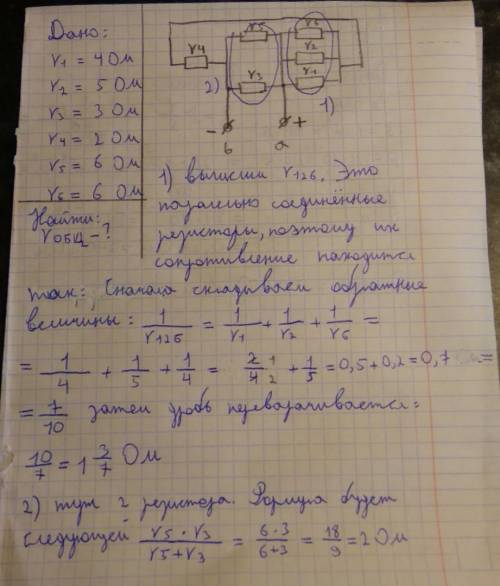 Дано:
r1 = 4 Ом
r2 = 5 Ом
r3 = 3 Ом
r4 = 2 Ом
r5 = 6 Ом
r6 = 6 Ом
Найти:
rобщ - ?
r5
r6
r4
r2
2)
r3
r1
1)
- +
b a
1) вычислим r126. Это
паралельно соединённые
резисторы, поэтому их
сопротивление находится
так: Сначала складываем обратные
величины: 1/r126 = 1/r1 + 1/r2 + 1/r6 =
= 1/4 + 1/5 + 1/4 = 2/4 1/2 + 1/5 = 0,5+0,2=0,7 =
= 7/10 затем дробь переворачивается:
10/7 = 1 3/7 Ом
2) тут 2 резистора. Формула будет
следующей r5 · r3/r5+r3 = 6·3/6+3 = 18/9 = 2 Ом